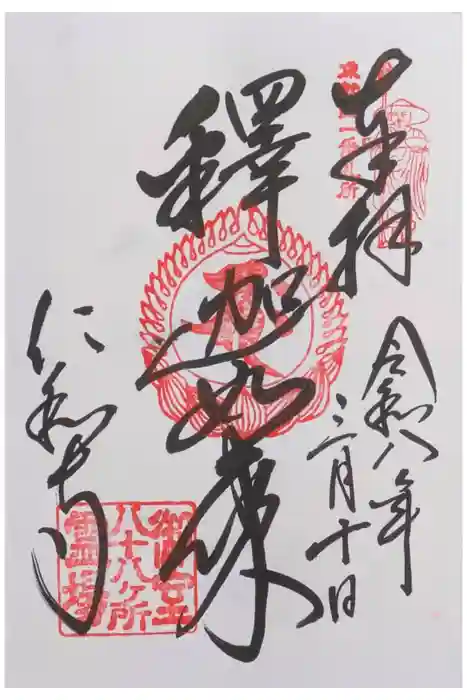 奉拝
令和八年
三月十日
釋迦如来
仁和寺
御室
八十八ヶ所
霊場